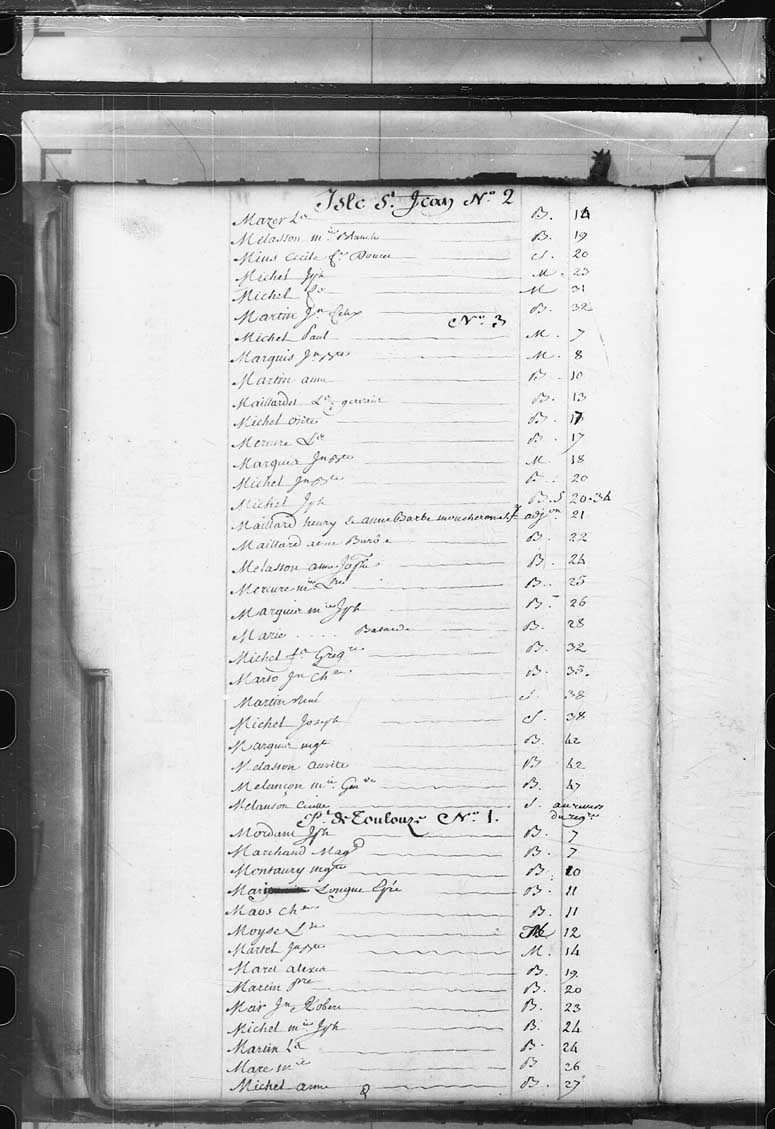 Isle St. Jean No. 2
Mazer Ls B. 14
Melasson mie Blanche B. 19
Mius Cecile fe Doucet S. 20
Michel Jph M. 23
Michel M 31
Martin Jn Felix B. 32
No. 3
Michel Paul M. 7
Marquis Jn Bte M. 8
Martin anne B. 10
Maillardet Ls gervais B. 13
Michel osite B.
Mercure Ls B. 17
Marquis Jn Bte M. 18
Michel Jn Bte B. 20
Michel Jph B. S 20.34
Maillard henry & anne Barbe moucheron adjon 21
Maillard anne Barbe B. 22
Melasson anne Josphe B. 24
Mercure mie B. 25
Marquis mie Jph B. 26
Marie .... Batarde B. 28
Michel Gregre B. 32
Marso Jn Ch B. 35.
Martin René S. 38
Michel Joseph S. 38
Marquis mgte B. 42
Melasson B. 42
Melançon mie Genve B. 47
Melanson Cecille S. au revers du regre
Pt. de Toulouze No. 1.
Mordant Jph B. 7
Marchand Magd B. 7
Montaury mgte B. 10
Longue Epée B. 11
Maos Ch B. 11
Moyse Ls 12
Martel Jn Bte M. 14
Maret alexis B. 19
Martin pre B. 20
Jn Robert B. 23
Michel mie Jph B. 24
Martin B. 24
Mare mie B 26
Michel anne B. 27